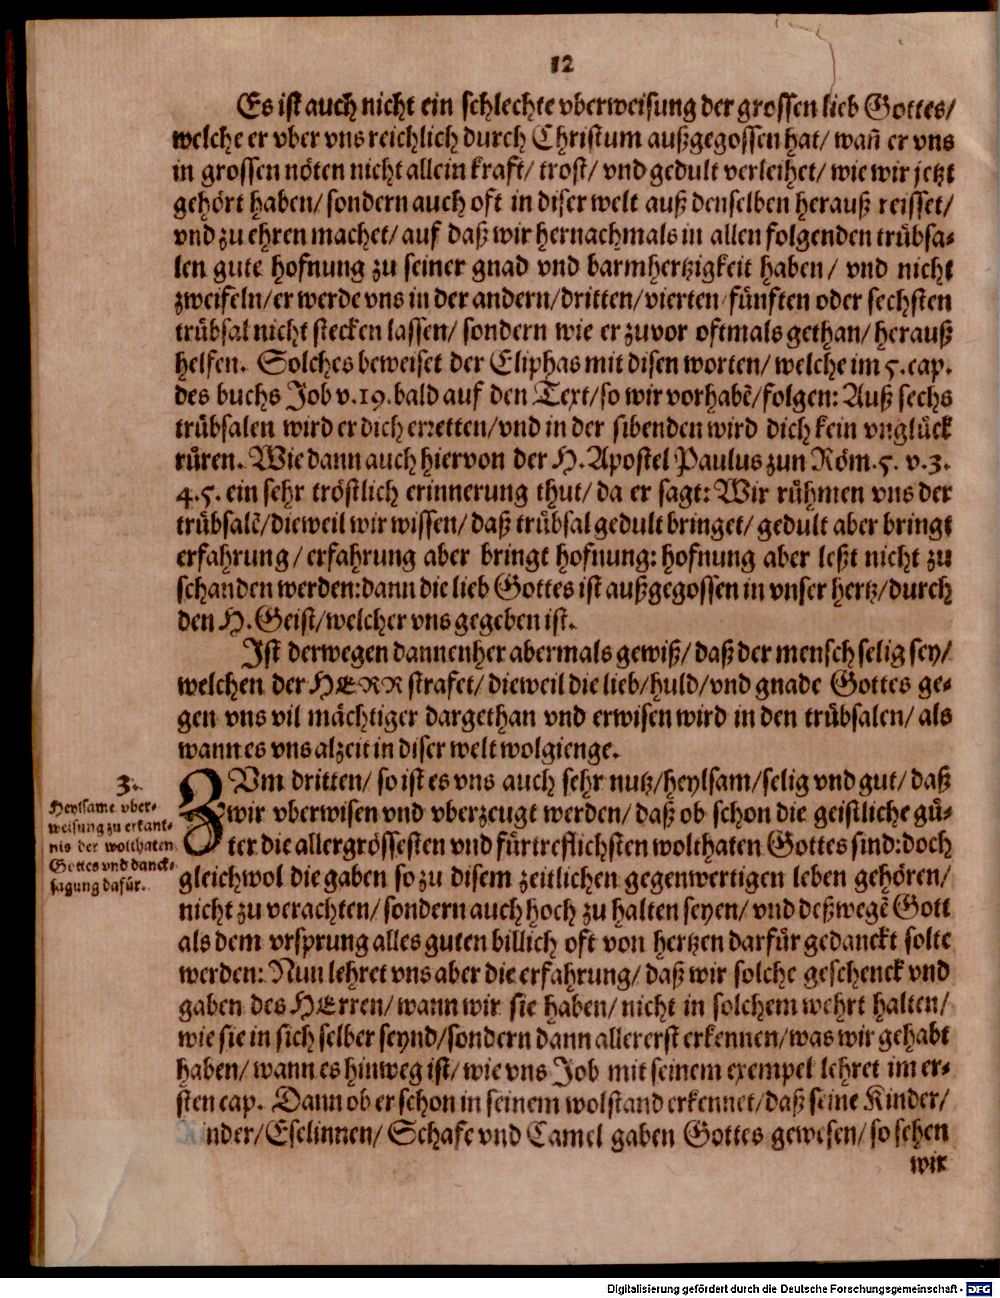 12
Es ist auch nicht ein schlechte vberweisung der grossen lieb Gottes/
welche er vber vns reichlich durch Christum außgegossen hat/ wañ er vns
in grossen nöten nicht allein kraft/ trost/ vnd gedult verleihet/ wie wir jetzt
gehört haben/ sondern auch oft in diser welt auß denselben herauß reisset/
vnd zu ehren machet/ auf daß wir hernachmals in allen folgenden trübsa-
len gute hofnung zu seiner gnad vnd barmhertzigkeit haben/ vnd nicht
zweifeln/ er werde vns in der andern/ dritten/ vierten/ fünften oder sechsten
trübsal nicht stecken lassen/ sondern wie er zuvor oftmals gethan/ herauß
helfen. Solches beweiset der Eliphas mit disen worten/ welche im 5. cap.
des buchs Job v. 19. bald auf den Text/ so wir vorhabẽ/ folgen: Auß sechs
trübsalen wird er dich erretten/ vnd in der sibenden wird dich kein vnglück
rüren. Wie dann auch hiervon der H. Apostel Paulus zun Röm. 5. v. 3.
4. 5. ein sehr tröstlich erinnerung thut/ da er sagt: Wir rühmen vns der
trübsalẽ/ dieweil wir wissen/ daß trübsal gedult bringet/ gedult aber bringt
erfahrung/ erfahrung aber bringt hofnung: hofnung aber leßt nicht zu
schanden werden: dann die lieb Gottes ist außgegossen in vnser hertz/ durch
den H. Geist/ welcher vns gegeben ist.
Ist derwegen dannenher abermals gewiß/ daß der mensch selig sey/
welchen der HERR strafet/ dieweil die lieb/ huld/ vnd gnade Gottes ge-
gen vns vil mächtiger dargethan vnd erwisen wird in den trübsalen/ als
wann es vns alzeit in diser welt wolgienge.
3.
Heylsame vber-
weisung zu erkant-
nis der wolthaten
Gottes vnd danck-
sagung dafür.
ZUm dritten/ so ist es vns auch sehr nutz/ heylsam/ selig vnd gut/ daß
wir vberwisen vnd vberzeugt werden/ daß ob schon die geistliche gü-
ter die allergrössesten vnd fürtreflichsten wolthaten Gottes sind: doch
gleichwol die gaben so zu disem zeitlichen gegenwertigen leben gehören/
nicht zu verachten/ sondern auch hoch zu halten seyen/ vnd deßwegẽ Gott
als dem vrsprung alles guten billich oft von hertzen darfür gedanckt solte
werden: Nun lehret vns aber die erfahrung/ daß wir solche geschenck vnd
gaben des HErren/ wann wir sie haben/ nicht in solchem wehrt halten/
wie sie in sich selber seynd/ sondern dann allererst erkennen/ was wir gehabt
haben/ wann es hinweg ist/ wie vns Job mit seinem exempel lehret im er-
sten cap. Dann ob er schon in seinem wolstand erkennet/ daß seine Kinder/
nder/ Eselinnen/ Schafe vnd Camel gaben Gottes gewesen/ so sehen
wir
Digitalisierung gefördert durch die Deutsche Forschungsgemeinschaft - DFG